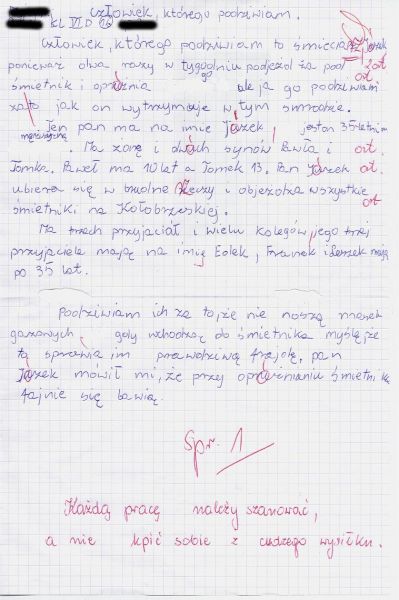 Człowiek, którego podziwiam.
kl VI D
Człowiek, którego podziwiam to śmieciaż Jacek
ponieważ dwa razy w tygodniu podjeżdża pod
śmietnik i oprużnia go ale ja go podziwiam
za to jak on wytrzymuje w tym smrodzie.
Ten pan ma na imię Jarek, jest on 35-letnim
mężczyzną. Ma żonę i dwuch synów Pawła i ort.
Tomka. Paweł ma 10 lat a Tomek 13. Pan Jarek ort.
ubiera się w brudne żeczy i objeżdża wszystkie ort
śmietniki na Kołobrzeskiej.
Ma trzech przyjaciół i wielu kolegów, jego trzej
przyjaciele mają na imię Lolek, Franek i Leszek mają
po 35 lat.
Podziwiam ich za to, że nie noszą masek
gazowych gdy wchodzą do śmietnika myślę, że
to sprawia im prawdziwą frajdę, pan
Jarek mówił mi, że przy oprużnianiu śmietnika
fajnie się bawią.
Spr. 1
Każdą pracę należy szanować,
a nie kpić sobie z cudzego wysiłku.